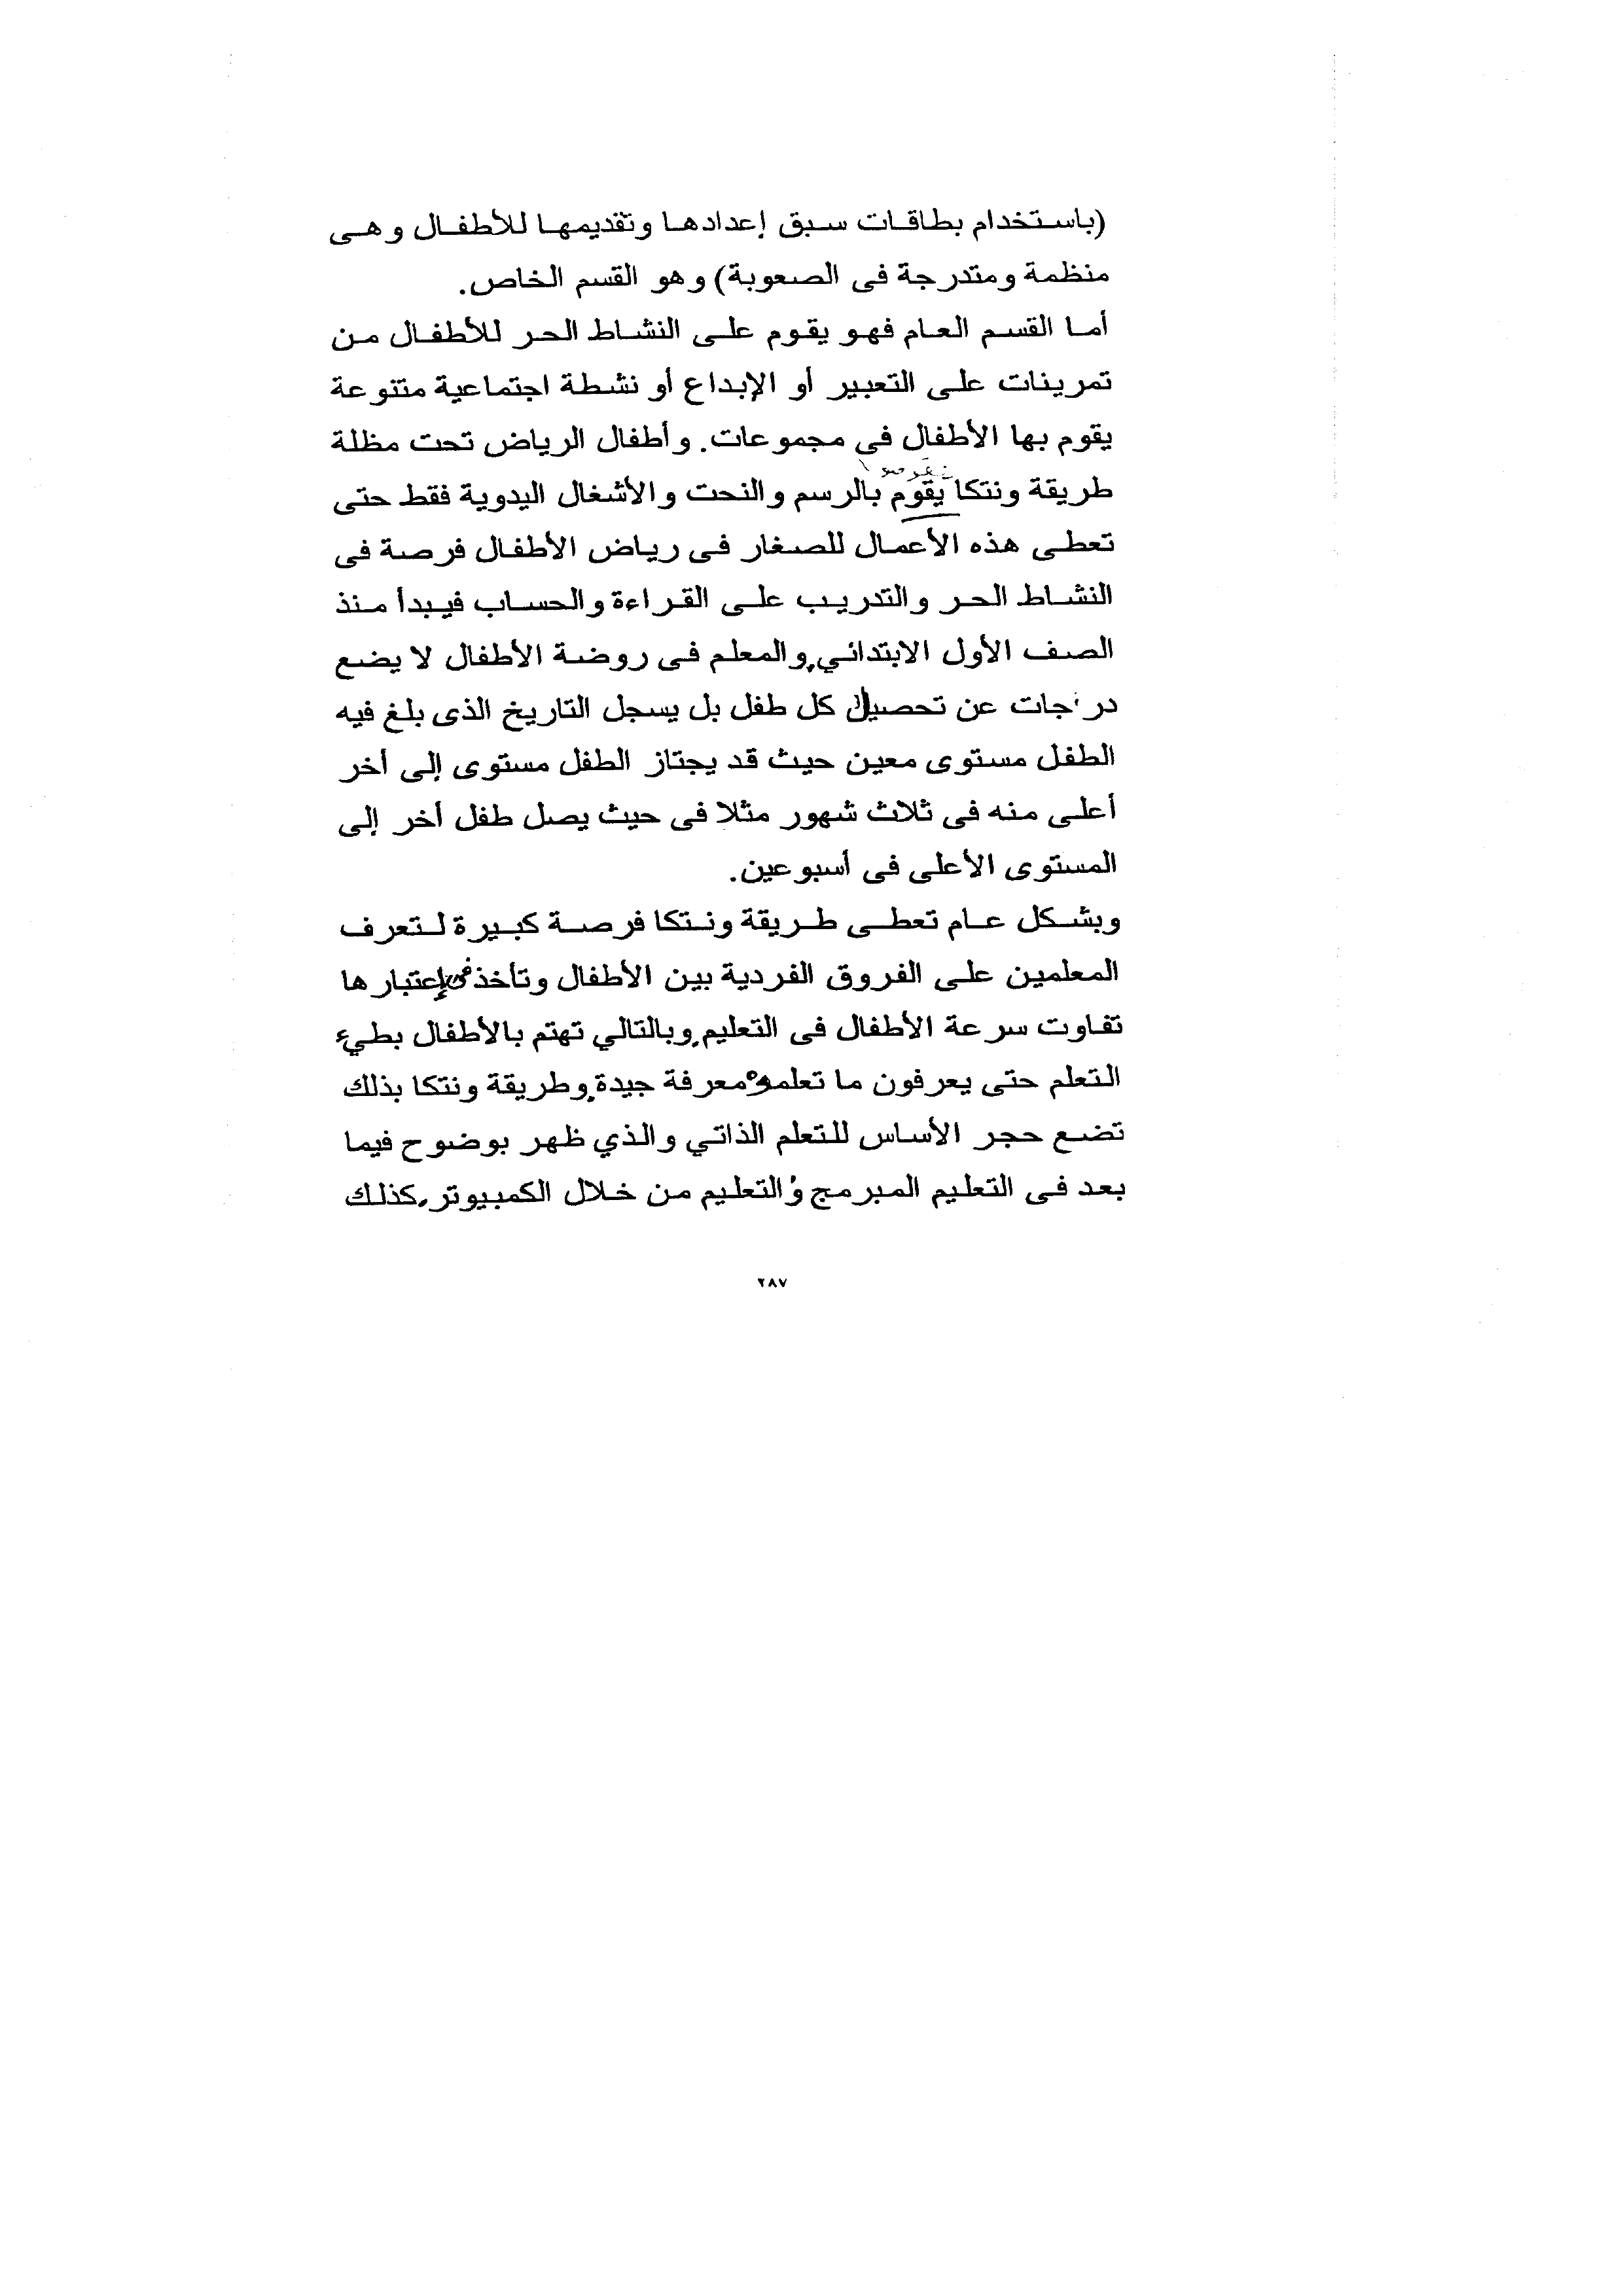 (باستخدام بطاقات سبق إعدادها وتقديمها للأطفال وهى
منظمة ومتدرجة فى الصعوبة) وهو القسم الخاص.
أما القسم العام فهو يقوم على النشاط الحر للأطفال من
تمرينات على التعبير أو الإبداع أو نشطة اجتماعية متنوعة
يقوم بها الأطفال فى مجموعات. وأطفال الرياض تحت مظلة
طريقة ونتكا يقوم بالرسم والنحت والأشغال اليدوية فقط حتى
تعطى هذه الأعمال للصغار فى رياض الأطفال فرصة فى
النشاط الحر والتدريب على القراءة والحساب فيبدأ منذ
الصف الأول الابتدائي، والمعلم فى روضة الأطفال لا يضع
درجات عن تحصيل كل طفل بل يسجل التاريخ الذى بلغ فيه
الطفل مستوى معين حيث قد يجتاز الطفل مستوى إلى أخر
أعلى منه فى ثلاث شهور مثلا فى حيث يصل طفل أخر إلى
المستوى الأعلى فى أسبوعين.
وبشكل عام تعطى طريقة ونتكا فرصة كبيرة لتعرف
المعلمين على الفروق الفردية بين الأطفال وتأخذ فى إعتبارها
تفاوت سرعة الأطفال فى التعليم، وبالتالي تهتم بالأطفال بطيء
التعلم حتى يعرفون ما تعلموه معرفة جيدة، وطريقة ونتكا بذلك
تضع حجر الأساس للتعلم الذاتي والذي ظهر بوضوح فيما
بعد فى التعليم المبرمج والتعليم من خلال الكمبيوتر، كذلك
٢٨٧